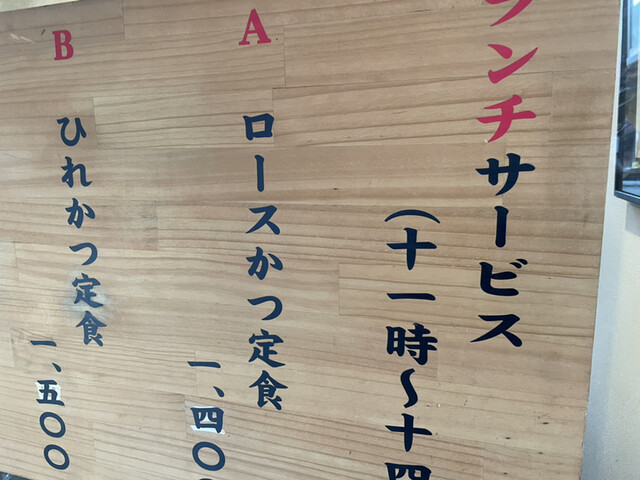 ランチサービス
(十一時～十四
A
ロースかつ定食
一、四〇〇
B
ひれかつ定食
一、五〇〇